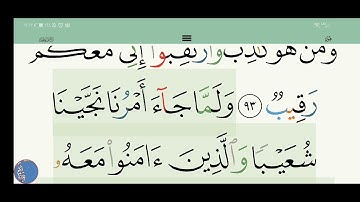 وَمَنْ هُوَ كَٰذِبٌ وَٱرْتَقِبُوٓا۟ إِنِّى مَعَكُمْ
رَقِيبٌ ٩٣ وَلَمَّا جَآءَ أَمْرُنَا نَجَّيْنَا
شُعَيْبًا وَٱلَّذِينَ ءَامَنُوا۟ مَعَهُۥ